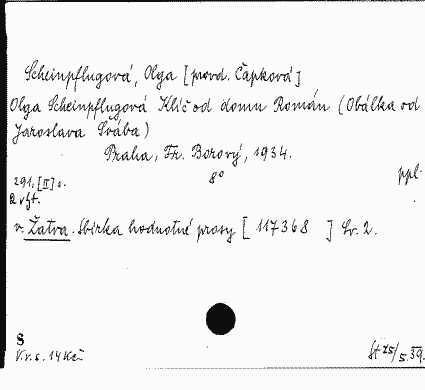 Scheinpflugová, Olga [provd. Čapková]
Olga Scheinpflugová Klíč od domu Román (Obálka od
Jaroslava Švába)
Praha, Fr. Borový, 1934.
291, [II] s. 8° ppl.
v. Žatva. Sbírka hodnotné prosy [117368 ] Sv. 2.
S
V.v.s. 14 Kč St 25/5.39.